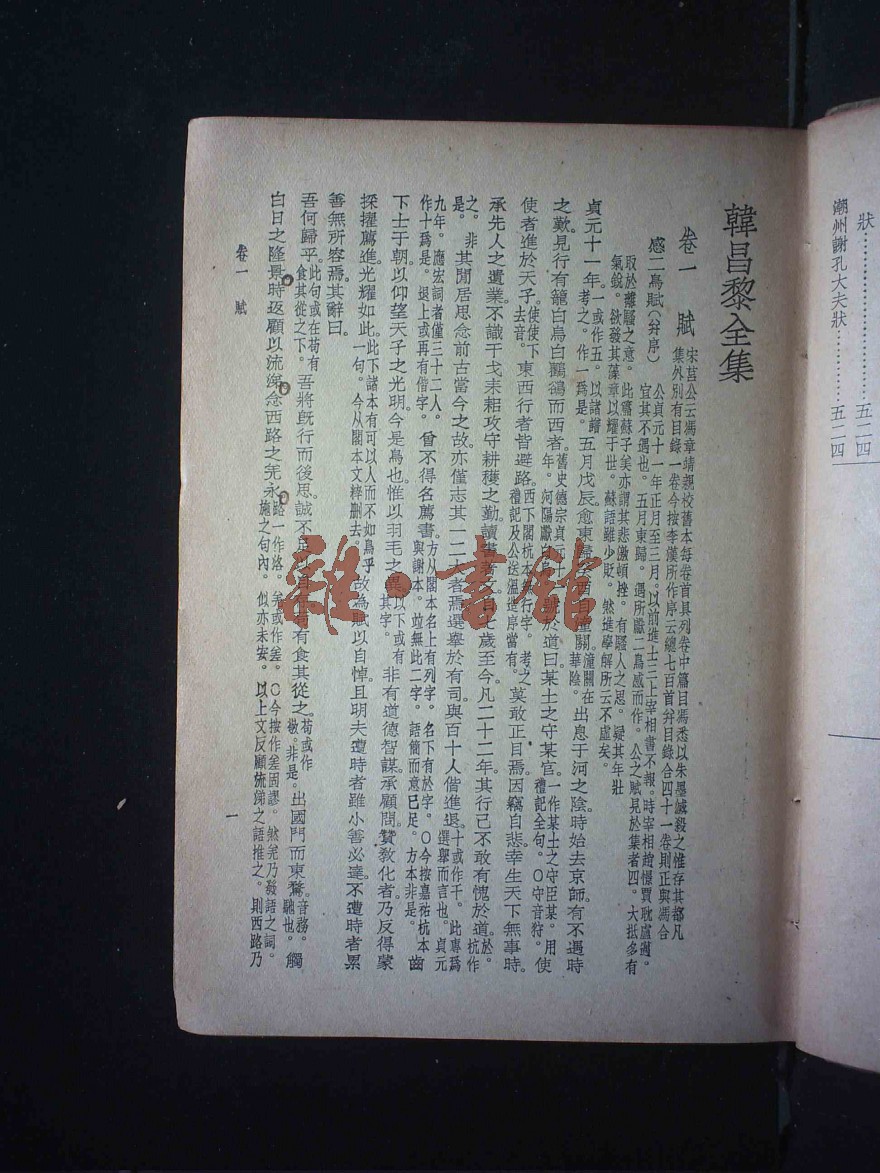 狀……………………五二四
潮州謝孔大夫狀……………五二四
韓昌黎全集
卷一　賦
宋莒公云馮章靖親校舊本每卷首具列卷中篇目馮悉以朱墨滅殺之惟存其都凡
集外別有目錄一卷今按李漢所作序云總七百首幷目錄合四十一卷則正與馮合
感二鳥賦（幷序）
公貞元十一年正月至三月。以前進士三上宰相書不報。時宰相趙憬賈耽盧邁。
宜其不遇也。五月東歸。遇所獻二鳥感而作。公之賦見於集者四。大抵多有
取於離騷之意。此篇蘇子美亦謂其悲激頓挫。有騷人之思。疑其年壯
氣銳。欲發其藻章以耀于世。蘇語雖少貶。然進學解所云不虛矣。
貞元十一年。一或作五。以諸譜考之。作一爲是。五月戊辰愈東歸。癸酉自潼關潼關在華陰。出息于河之陰時始去京師有不遇時
之歎見行有籠白烏白鸜鵒而西者。舊史德宗貞元年。河陽獻白號於道曰某土之守某官。一作某土之守臣某。用禮記全句。〇守音狩。使
使者進於天子。使使下去音。東西行者皆避路。西下閣杭本無行字。考之禮記及公送溫造序當有。莫敢正目焉。因竊自悲幸生天下無事時。
承先人之遺業不識干戈耒耜攻守耕穫之勤讀書著文自七歲至今凡二十二年其行己不敢有愧於道。於。杭作
之。非是。其閒居思念前古當今之故亦僅志其一二大者焉選舉於有司與百十人偕進退。十或作千。此專爲選舉而言也。貞元
九年。應宏詞者僅三十二人。作十爲是。退上或再有偕字。曾不得名薦書。方从閣本名上有列字。名下有於字。〇今按嘉祐杭本與謝本。竝無此二字。語簡而意已足。方本非是。齒
下士于朝以仰望天子之光明。今是鳥也惟以羽毛之異。以下或有其字。非有道德智謀承顧問贊敎化者乃反得蒙
採擢薦進光耀如此。此下諸本有可以人而不如鳥乎一句。今从閣本文粹刪去。故為賦以自悼且明夫遭時者雖小善必達。不遭時者累
善無所容焉其辭曰。
吾何歸乎。此句或在苟有食其從之下。吾將旣行而後思。誠不足以自存苟有食其從之。苟或作敬。非是。出國門而東騖。音務。馳也。觸
白日之隆景時返顧以流涕念西路之羌永。路一作洛。羌或作差。〇今按作差固謬。然羌乃發語之詞。施之句內。似亦未安。以上文反顧流涕之語推之。則西路乃
卷一　賦
一
雜·書館